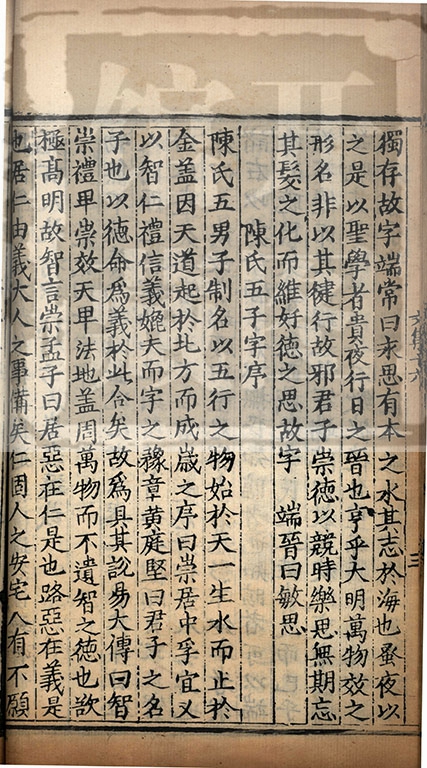 獨存故字端常曰求思有本之水其志於海也蚤夜以
之是以聖學者貴夜行日之晉也亨乎大明萬物效之
形名非以其徤行故邪君子崇德以競時樂思無期忘
其髮之化而維好德之思故字 端晉曰敏思
陳氏五子字序
陳氏五男子制名以五行之物始於天一生水而止於
金盖因天道起於北方而成歲之序曰崇居中孚宜乂
以智仁禮信義媲夫而字之豫章黄庭堅曰君子之名
子也以德命爲義於此合矣故爲具其說易大傳曰智
崇禮卑崇效天卑法地盖周萬物而不遺智之德也欲
極高明故智言崇孟子曰居惡在仁是也路惡在義是
也居仁由義大人之事備矣仁固人之安宅人有不願